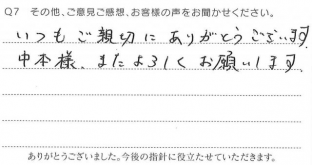 Q7 その他、ご意見ご感想、お客様の声をお聞かせください。
いつもご親切にありがとうございます。
中本様、またよろしくお願いします。
ありがとうございました。今後の指針に役立たせていただきます。